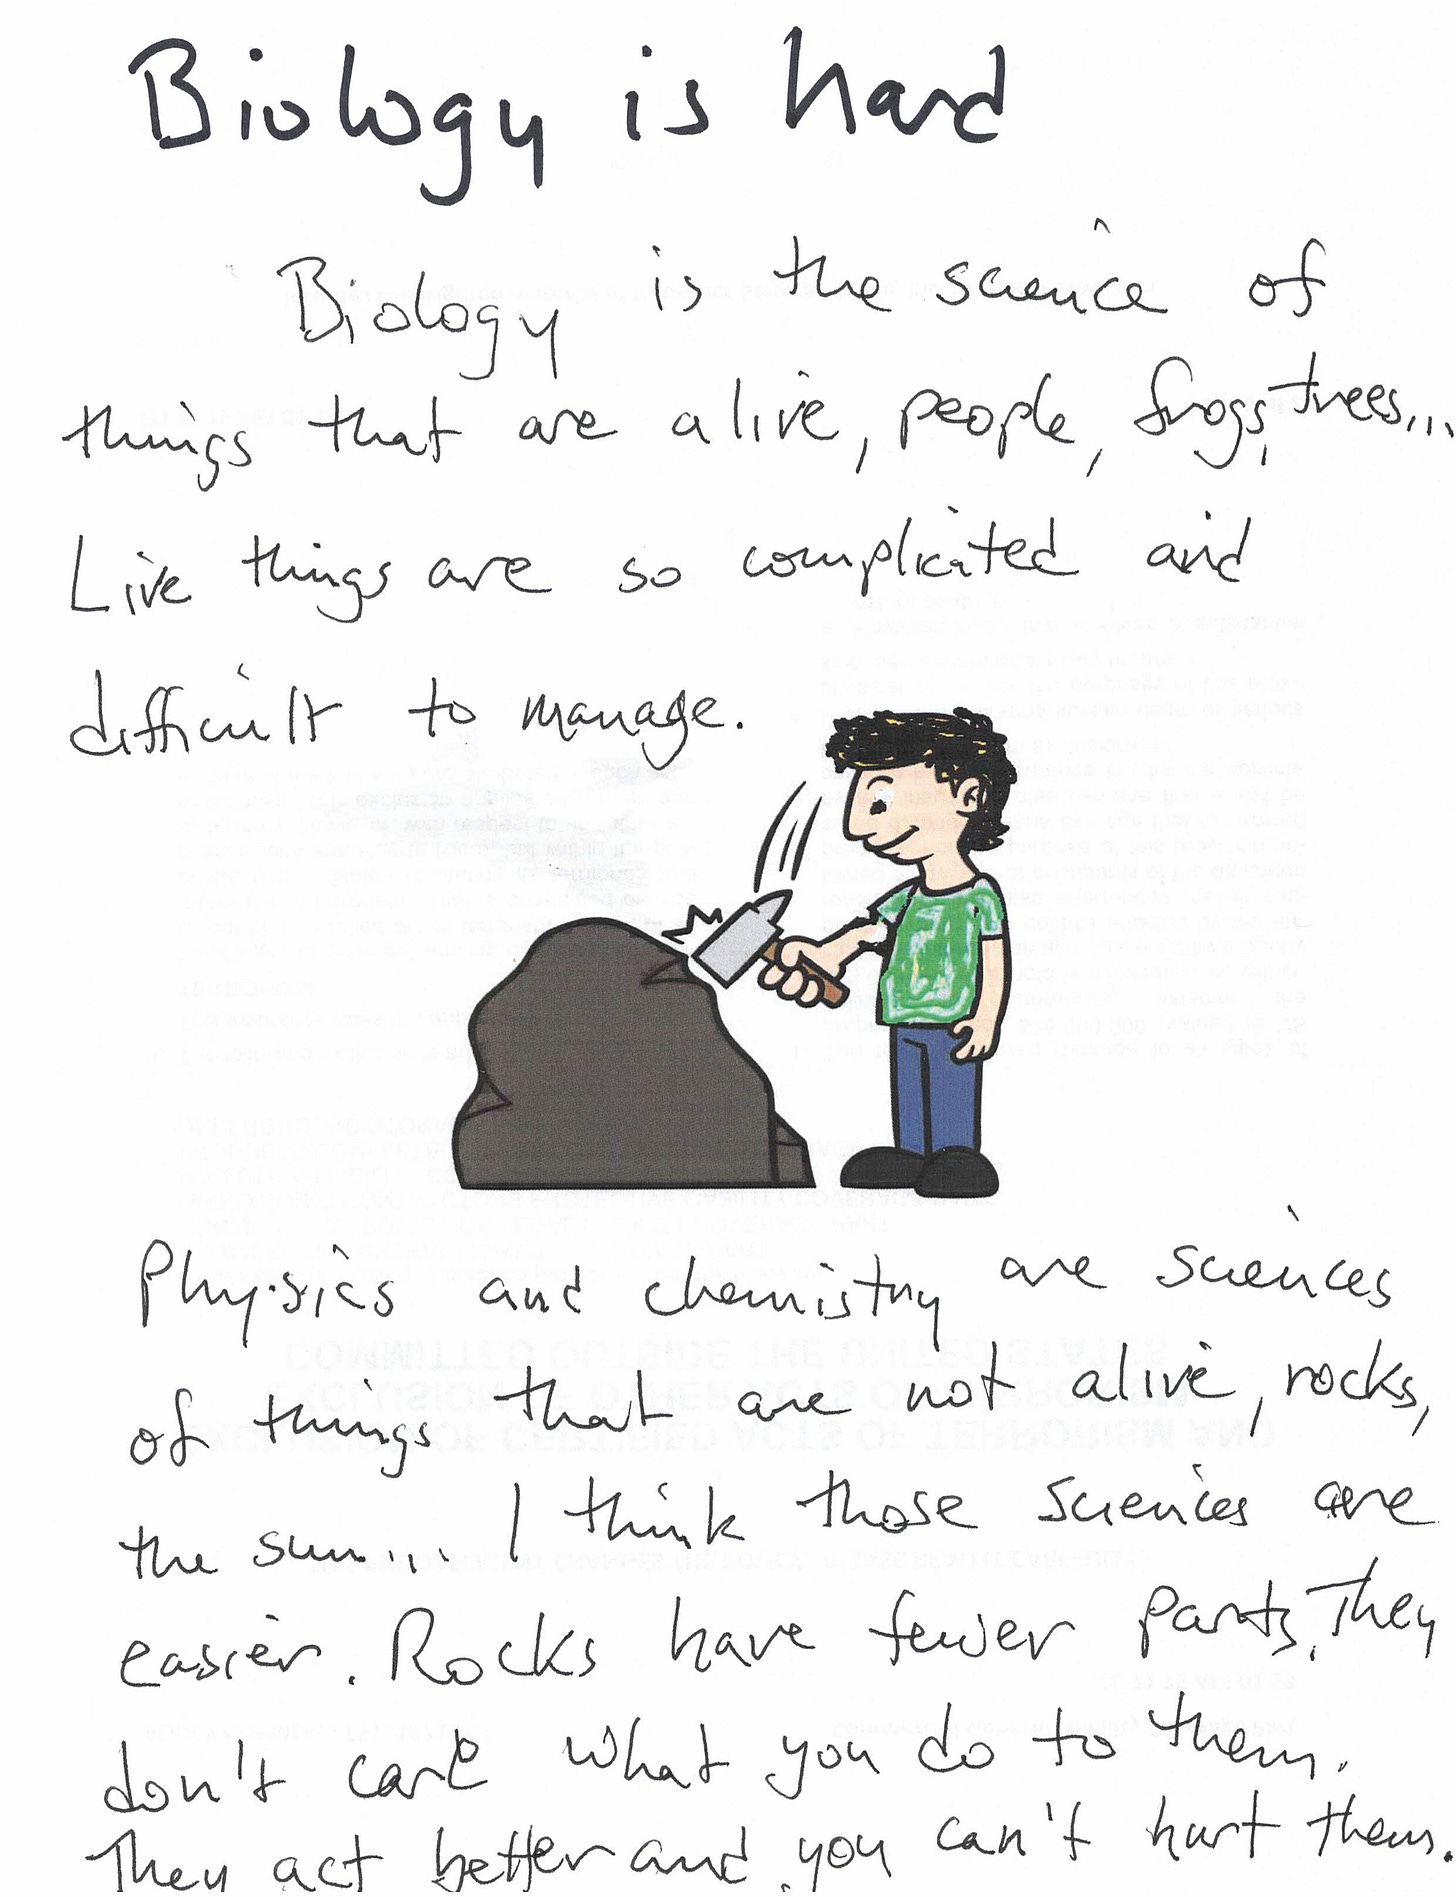 Biology is hard
Biology is the science of
things that are alive, people, frogs, trees...
Live things are so complicated and
difficult to manage.
Physics and chemistry are sciences
of things that are not alive, rocks,
the sun... I think those sciences are
easier. Rocks have fewer parts. They
don't care what you do to them.
They act better and you can't hurt them.